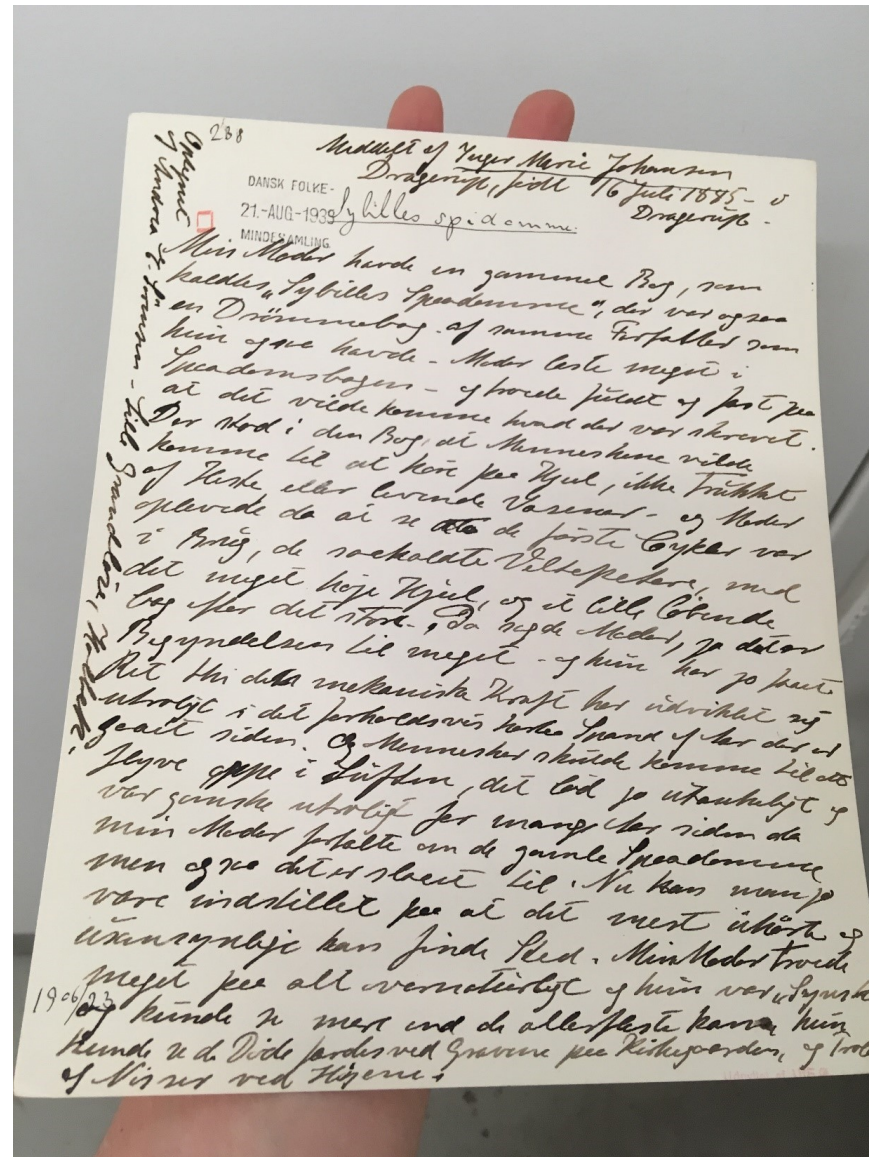 288
Meddelt af Inger Marie Johansen
Dragerup, født 16 Juli 1885 -
Dragerup -
DANSK FOLKE-
21.-AUG-1939
MINDESAMLING
Sybilles spådomme.
Min Moder havde en gammel Bog, som
kaldtes "Sybilles Spaadomme", der var ogsaa
en Drömmebog af samme Forfatter som
hun ogsaa havde - Moder læste meget i
Spaadomsbogen - og troede fuldt og fast paa
at det vilde komme hvad der var skrevet.
Der stod i den Bog, at Menneskene vilde
komme til at köre paa Hjul, ikke trukket
af Heste eller levende Væsener - og Moder
oplevede da at se de förste Cykler var
i Brug, de saakaldte Veltepetere, med
det meget höje Hjul, og et lille löbende
bag efter det store, Da sagde Moder, ja det er
Begyndelsen til meget - og hun har jo faaet
Ret thi den mekaniske Kraft har udviklet sig
utroligt i det forholdsvis korte Spand af Aar der er
gaaet siden. Og Mennesker skulde komme til at
flyve oppe i Luften, det löd jo utænkeligt og
var ganske utroligt for mange Aar siden da
min Moder fortalte om de gamle Spaadomme
men ogsaa det er slaaet til. Nu kan man jo
være indstillet paa at det mest uhörte og
usansynlige kan finde Sted. Min Moder troede
meget paa alt overnatürligt og hun var "Synsk"
og kunde se mere end de allerfleste kan, hun
kunde se de Döde færdes ved Gravene paa Kirkegaarden, og Trolde
og Nisser ved Höjene.
1906/23
Optegnet
af Andrea E. Sörensen - Lille Grandløse, Holbæk.